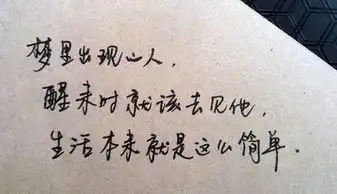 梦里出现心人，
醒来时就该去见他，
生活本来就是这么简单．